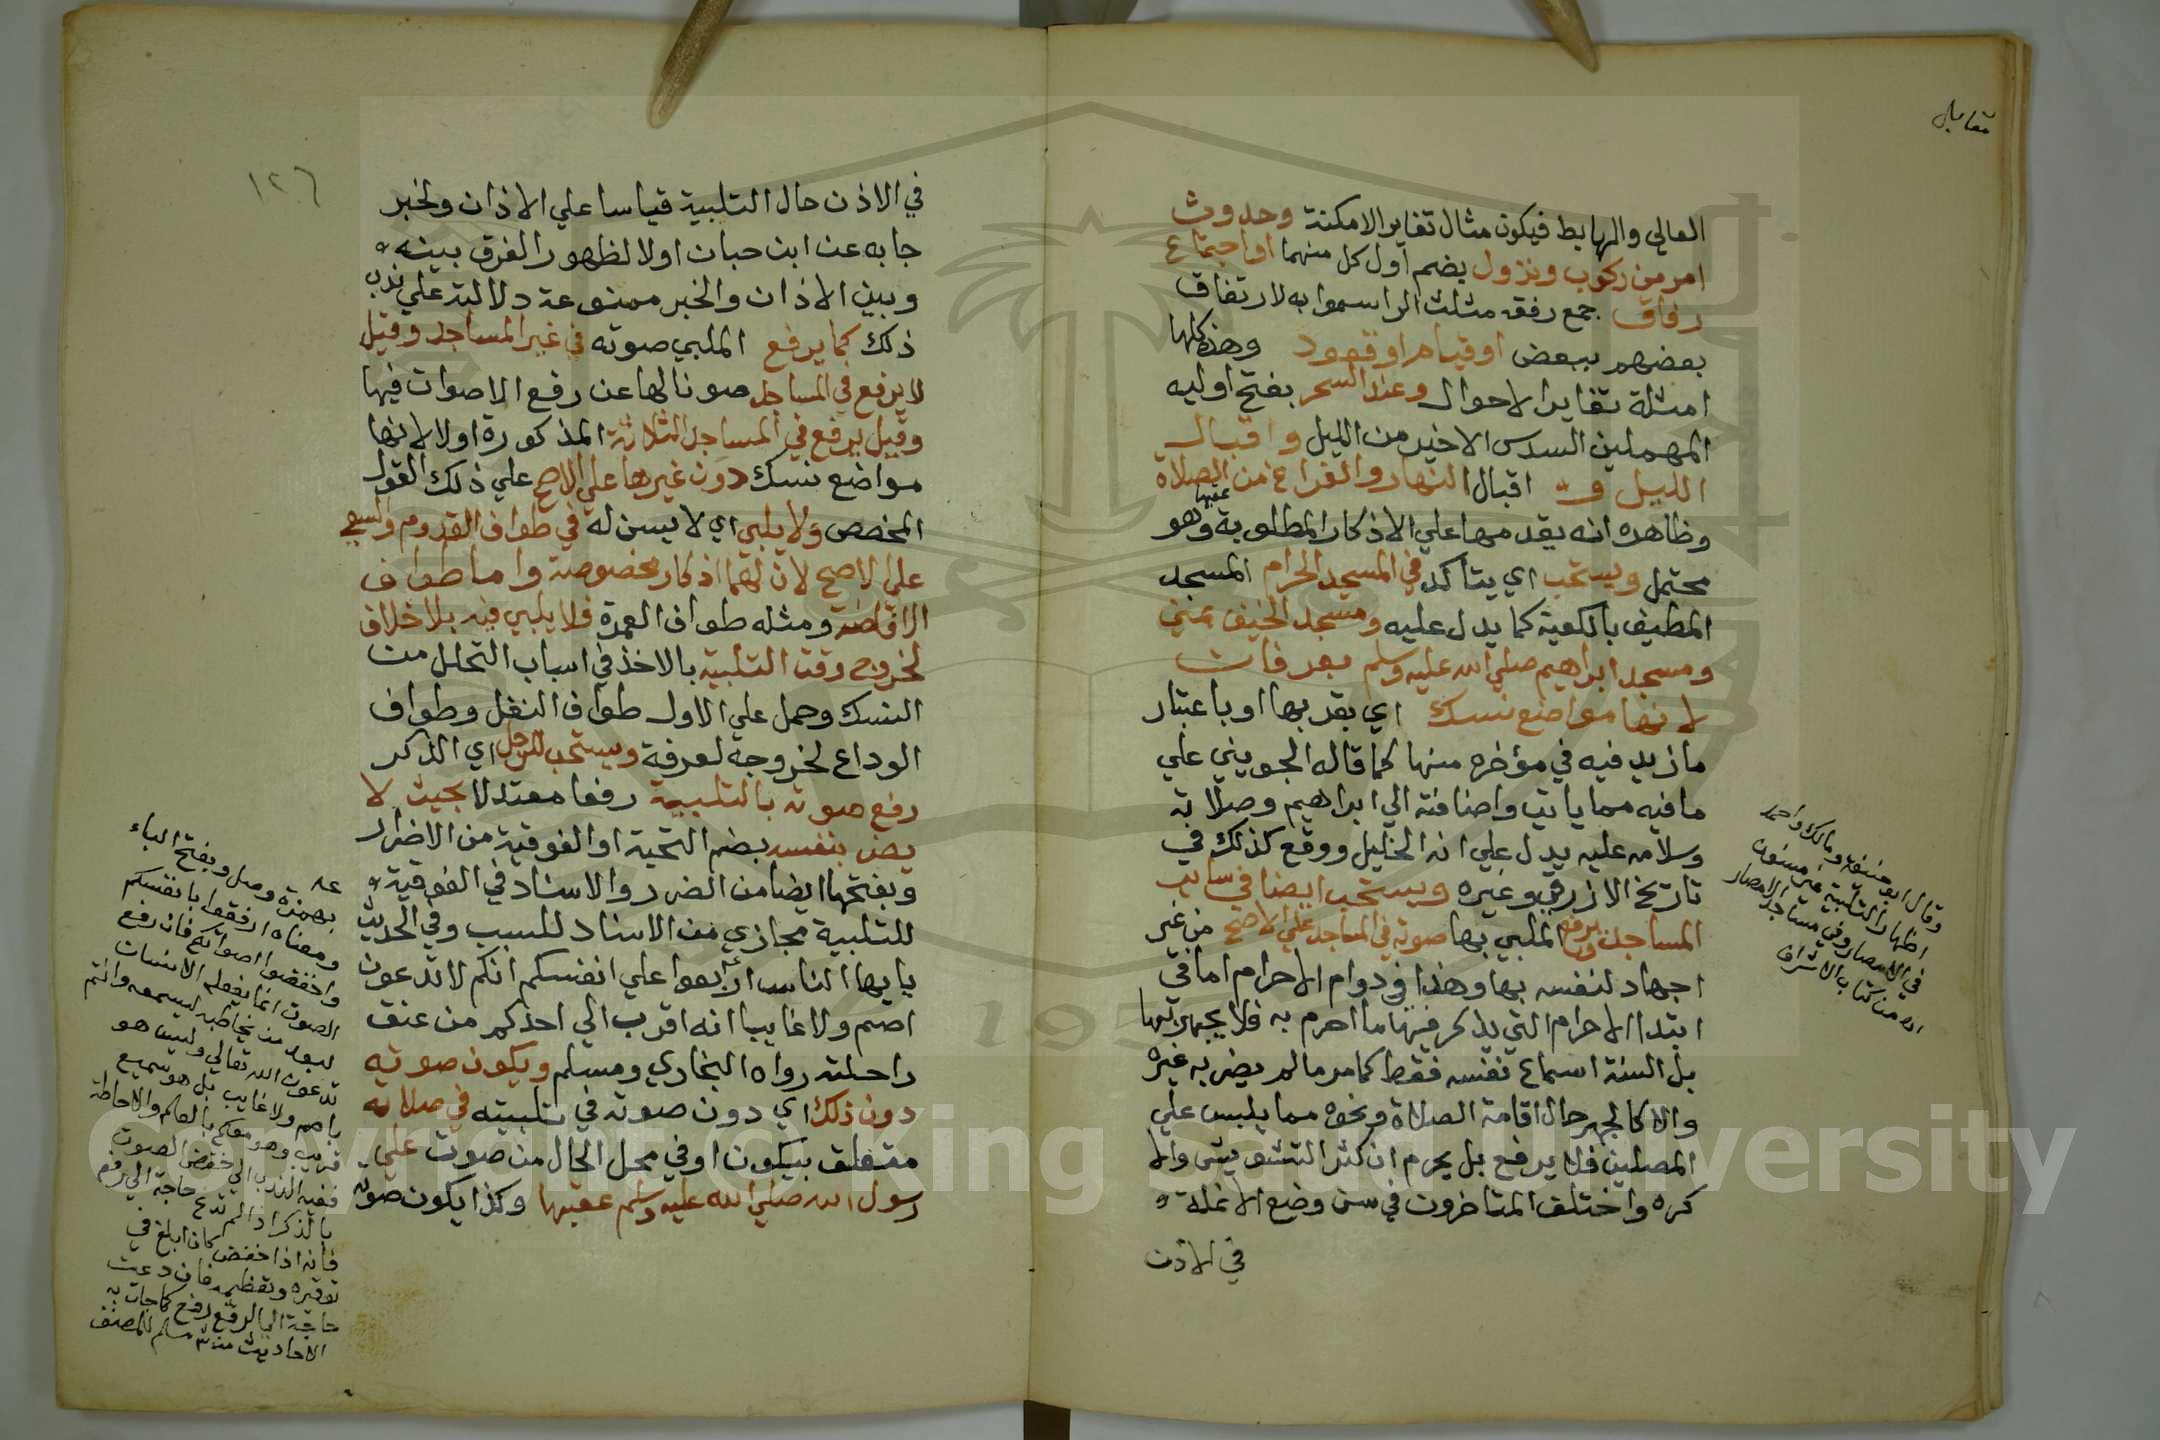 تقابل
العالي والهابط فيكون مثال تغاير الامكنة وحدوث
امر من ركوب ونزول بضم اول كل منهما او اجتماع
رفاق جمع رفقه مثلث الراسموا به لارتفاق
بعضهم ببعض او قيام او قعود وهذه كلها
امثلة تغاير الاحوال وعند السحر بفتح اوليه
المهملين السدس الاخير من الليل واقبال
الليل و اقبال النهار والفراغ من الصلاة
وظاهره انه يقدمها علي الاذكار المطلوبة عقبها وهو
محتمل ويستحب اي يتاكد في المسجد الحرام المسجد
المطيف بالكعبة كما يدل عليه ومسجد الخيف بمني
ومسجد ابراهيم صلي الله عليه وسلم بعرفات
لانها مواضع نسك اي بقربها او باعتبار
ما زيد فيه في مؤخره منها كما قاله الجويني علي
ما فيه مما ياتي واضافته الي ابراهيم وصلاته
وسلامه عليه يدل علي انه الخليل ووقع كذلك في
تاريخ الازرقي وغيره ويستحب ايضا في ساير
المساجد ويرفع الملبي بها صوته في المساجد علي الاصح من غير
اجهاد لنفسه بها وهذا في دوام الاحرام اما في
ابتدا الاحرام التي يذكر فيها ما احرم به فلا يجهر بها
بل السنة اسماع نفسه فقط كما مر ما لم يضر به غيره
والا كالجهر حال اقامة الصلاة ونحوه مما يلبس علي
المصلين فلا يرفع بل يحرم ان كثر التشويش والا
كره واختلف المتاخرون في سن وضع الانملة
في الاذن
وقال ابو حنيفة ومالك واحمد
اظهار التلبية غير مسنون
في الامصار وفي مساجد الامصار
اه من كتاب الاشراف
١٢٦
في الاذن حال التلبية قياسا علي الاذان ولخبر
جا به عن ابن حبان اولا لظهور الفرق بينه
وبين الاذان والخبر ممنوعة دلالته علي ندب
ذلك كما يرفع الملبي صوته في غير المساجد وقيل
لا يرفع في المساجد صونا لها عن رفع الاصوات فيها
وقيل يرفع في المساجد الثلاثة المذكورة اولا لانها
مواضع نسك دون غيرها علي الاصح علي ذلك القول
المخصص ولا يلبي اي لا يسن له في طواف القدوم والسعي
علي الاصح لان لهما اذكار مخصوصة واما طواف
الافاضه ومثله طواف العمرة فلا يلبي فيه بلا خلاف
لخروج وقت التلبية بالاخذ في اسباب التحلل من
النسك وحمل علي الاول طواف النفل وطواف
الوداع لخروجه لعرفة ويستحب للرجل اي الذكر
رفع صوته بالتلبية رفعا معتدلا بحيث لا
يضر بنفسه بضم التحية او الفوقية من الاضرار
وبفتحها ايضا من الضرر والاسناد في الفوقية
للتلبية مجازي من الاسناد للسبب وفي الحديث
يايها الناس اربعوا علي انفسكم انكم لا تدعون
اصم ولا غايبا انه اقرب الي احدكم من عنق
راحلته رواه البخاري ومسلم ويكون صوته
دون ذلك اي دون صوته في تلبيته في صلاته
متعلق بيكون او في محل الحال من صوت علي
رسول الله صلي الله عليه وسلم عقيبها وكذا يكون صوته
بهمزة وصل وبفتح الباء
ومعناه ارفقوا بانفسكم
واخفضوا اصواتكم فان رفع
الصوت انما يفعله الانسان
لبعد من يخاطبه ليسمعه وانتم
تدعون الله تعالي وليس هو
باصم ولا غايب بل هو سميع
قريب وهو معكم بالعلم والاحاطة
ففيه الندب الي خفض الصوت
بالذكر اذا لم تدع حاجة الي رفع
فانه اذا خفض كان ابلغ في
توقيره وتعظيمه فان دعت
حاجة الي الرفع رفع كما جات به
الاحاديث من ش مسلم للمصنف
Copyright © King Saud University
195